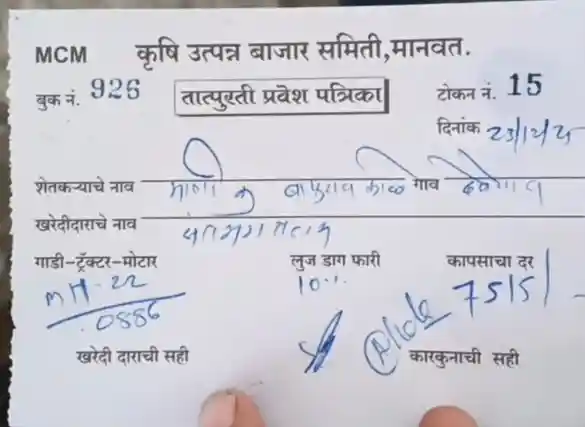 MCM कृषि उत्पन्न बाजार समिती,मानवत.
बुक नं. 926 तात्पुरती प्रवेश पत्रिका टोकन नं. 15
दिनांक 23/12/25
शेतकऱ्याचे नाव माणिक बाबुराव काळे गाव देवेगाव
खरेदीदाराचे नाव
गाडी-ट्रॅक्टर-मोटार लुज डाग फारी कापसाचा दर
MH-22 10% 7515/-
0886
खरेदी दाराची सही कारकुनाची सही